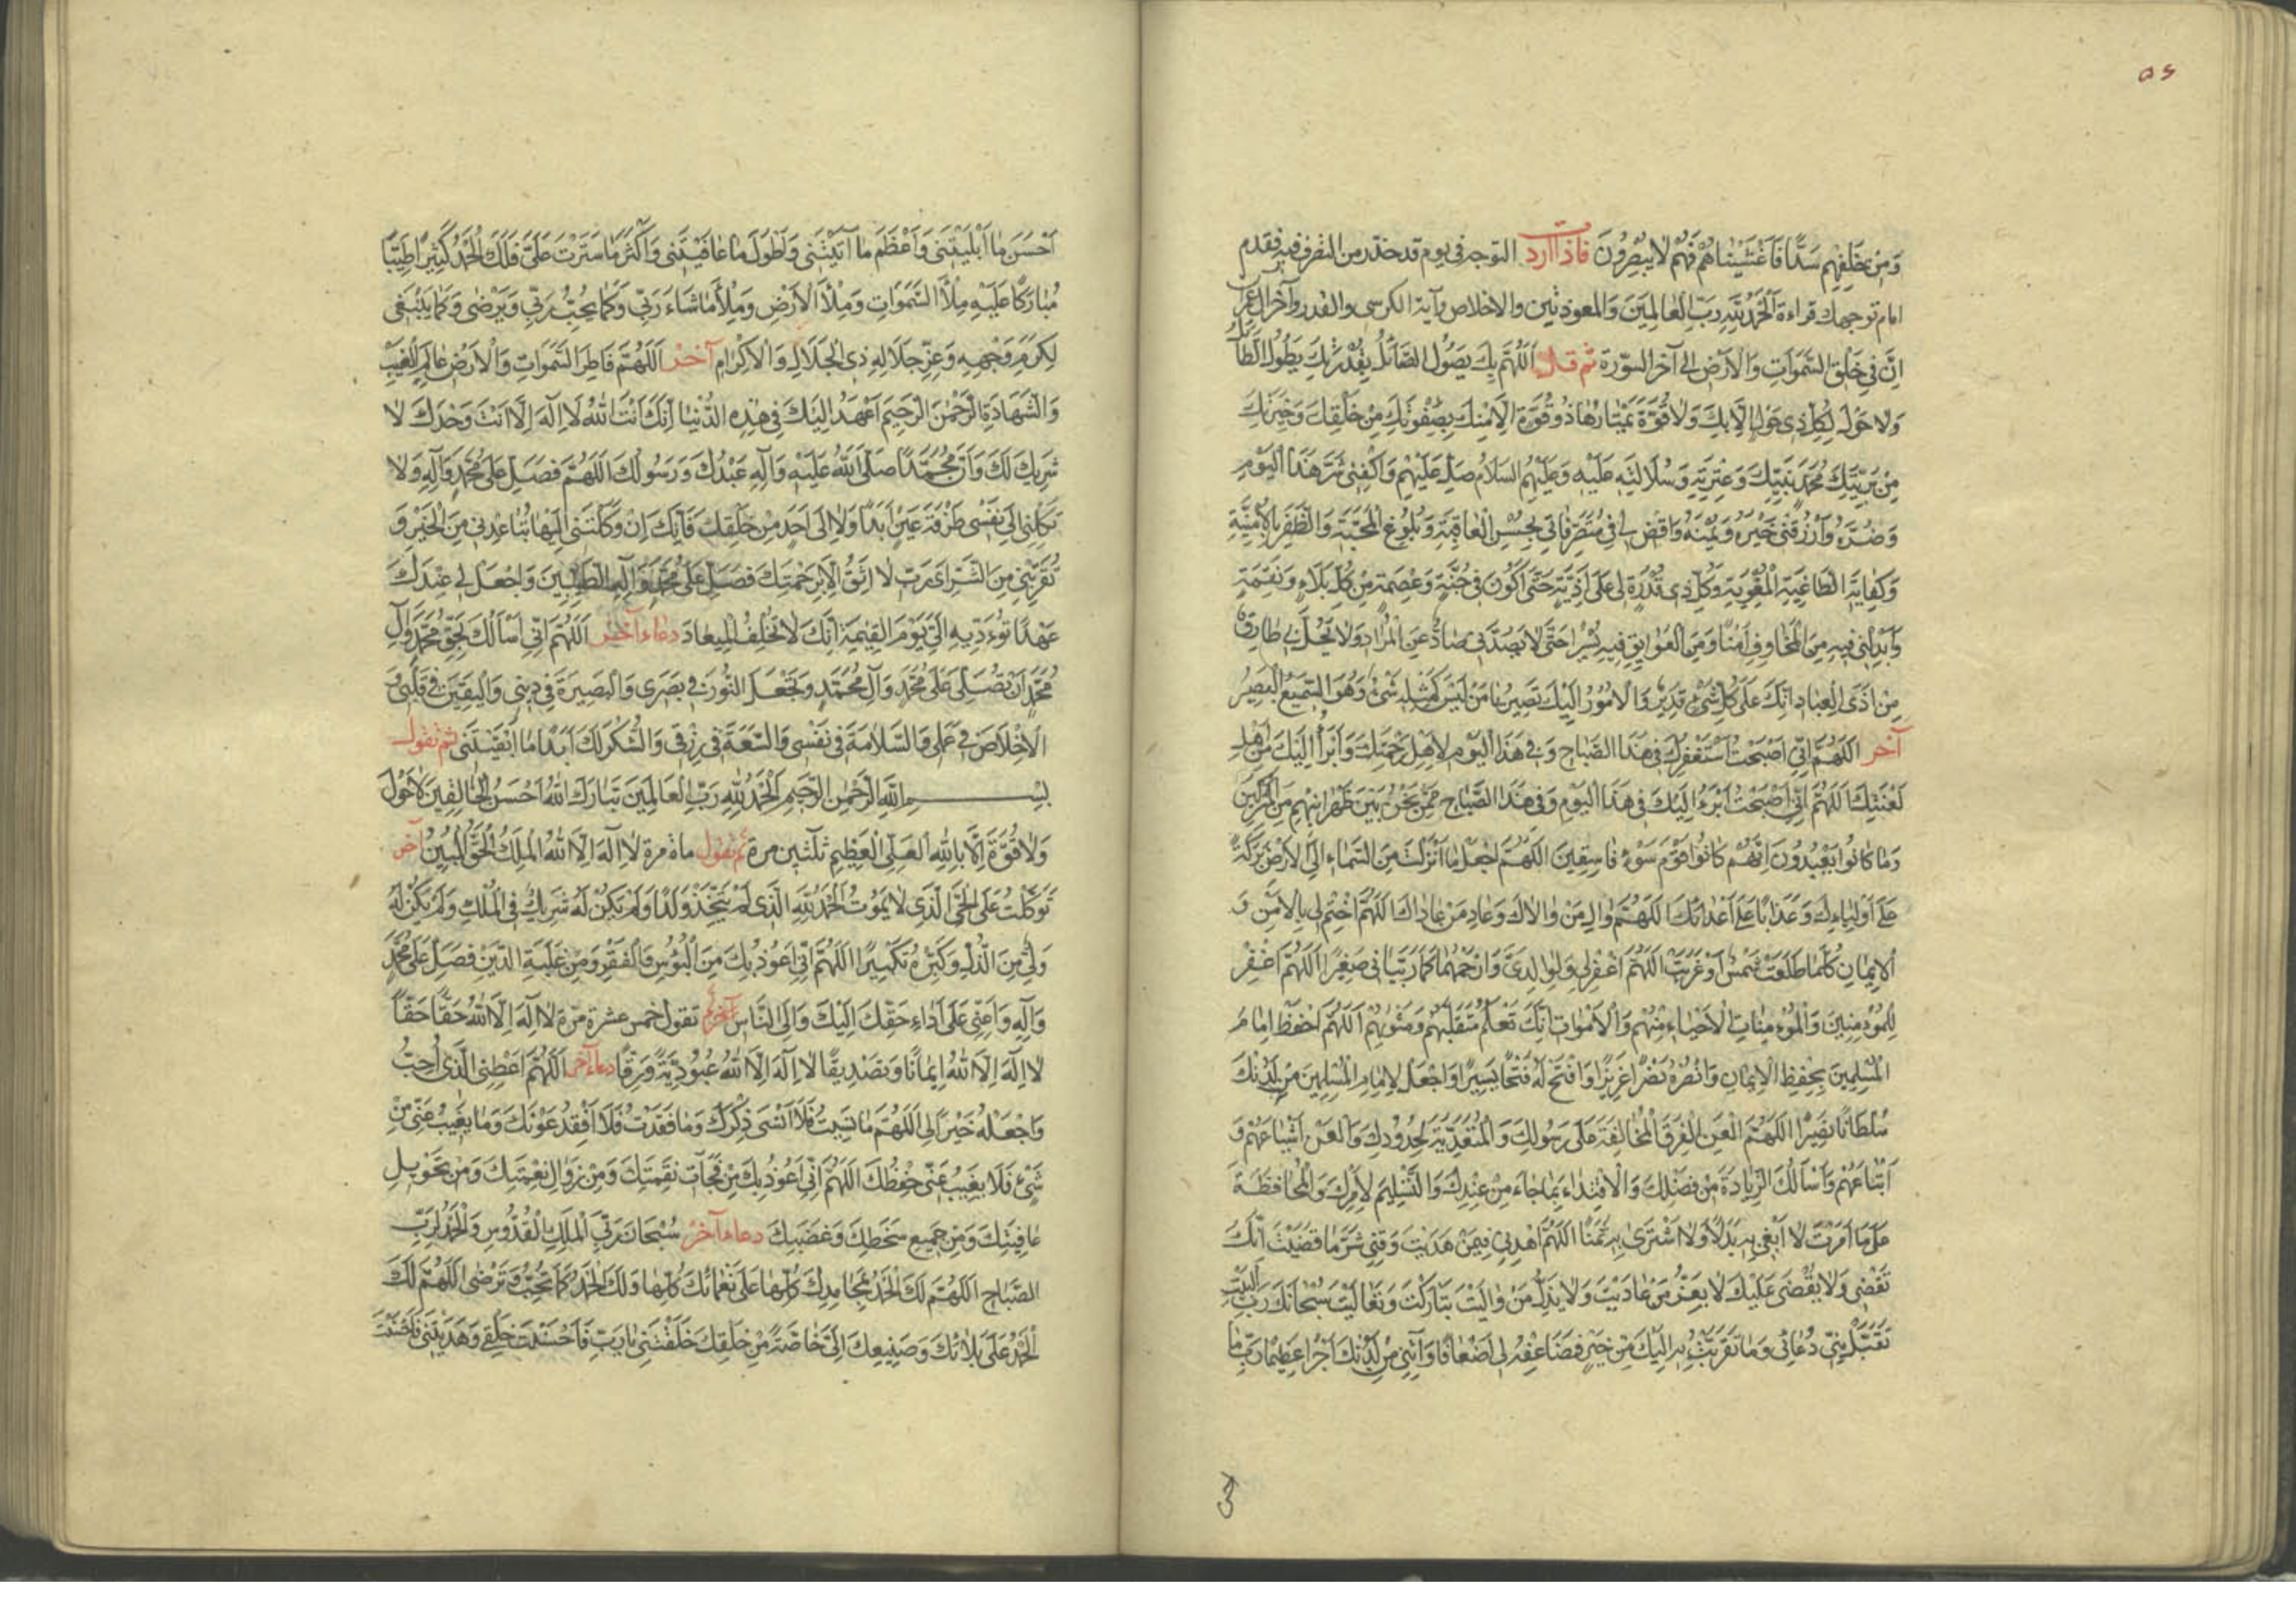 ٥٤
وَمِنْ خَلْفِهِمْ سَدًّا فَاَغْشَيْنَاهُمْ فَهُمْ لَا يُبْصِرُونَ فاذا اردت التوجه فى يوم قد حذر من التصرف فيه فقدم
امام توجهك قراءة اَلْحَمْدُ لِلّٰهِ رَبِّ الْعَالَمِينَ وَالمعوذتين والاخلاص وآية الكرسى والقدر وآخر آل عمران
اِنَّ فِى خَلْقِ السَّمٰوَاتِ وَالْاَرْضِ الى آخر السّورة ثم قل اَللّٰهُمَّ بِكَ يَصُولُ الصَّائِلُ بِقُدْرَتِكَ يَطُولُ الطَّائِلُ
وَلَا حَوْلَ لِكُلِّ ذِى حَوْلٍ اِلَّا بِكَ وَلَا قُوَّةَ يَمْتَارُهَا ذُو قُوَّةٍ اِلَّا مِنْكَ بِصَفْوَتِكَ مِنْ خَلْقِكَ وَخِيَرَتِكَ
مِنْ بَرِيَّتِكَ مُحَمَّدٍ نَبِيِّكَ وَعِتْرَتِهِ وَسُلَالَتِهِ عَلَيْهِ وَعَلَيْهِمُ السَّلَامُ صَلِّ عَلَيْهِمْ وَاكْفِنِى شَرَّ هَذَا الْيَوْمِ
وَضُرَّهُ وَارْزُقْنِى خَيْرَهُ وَيُمْنَهُ وَاقْضِ لِى فِى مُتَصَرَّفَاتِى بِحُسْنِ الْعَاقِبَةِ وَبُلُوغِ الْمَحَبَّةِ وَالظَّفَرِ بِالْاُمْنِيَّةِ
وَكِفَايَةِ الطَّاغِيَةِ الْمُغْوِيَةِ وَكُلِّ ذِى قُدْرَةٍ لِى عَلَى اَذِيَّةٍ حَتَّى اَكُونَ فِى جُنَّةٍ وَعِصْمَةٍ مِنْ كُلِّ بَلَاءٍ وَنِقْمَةٍ
وَاَبْدِلْنِى فِيهِ مِنَ الْمَخَاوِفِ اَمْنًا وَمِنَ الْعَوَائِقِ فِيهِ يُسْرًا حَتَّى لَا يَصُدَّنِى صَادٌّ عَنِ الْمُرَادِ وَلَا يَحُلَّ بِى طَارِقٌ
مِنْ اَذَى الْعِبَادِ اِنَّكَ عَلَى كُلِّ شَىْءٍ قَدِيرٌ وَالْاُمُورُ اِلَيْكَ تَصِيرُ يَا مَنْ لَيْسَ كَمِثْلِهِ شَىْءٌ وَهُوَ السَّمِيعُ الْبَصِيرُ
آخر اَللّٰهُمَّ اِنِّى اَصْبَحْتُ اَسْتَغْفِرُكَ فِى هَذَا الصَّبَاحِ وَفِى هَذَا الْيَوْمِ لِاَهْلِ رَحْمَتِكَ وَاَبْرَأُ اِلَيْكَ مِنْ اَهْلِ
لَعْنَتِكَ اَللّٰهُمَّ اِنِّى اَصْبَحْتُ اَبْرَءُ اِلَيْكَ فِى هَذَا الْيَوْمِ وَفِى هَذَا الصَّبَاحِ مِمَّنْ نَحْنُ بَيْنَ ظَهْرَانَيْهِمْ مِنَ الْمُشْرِكِينَ
وَمَا كَانُوا يَعْبُدُونَ اِنَّهُمْ كَانُوا قَوْمَ سَوْءٍ فَاسِقِينَ اَللّٰهُمَّ اجْعَلْ مَا اَنْزَلْتَ مِنَ السَّمَاءِ اِلَى الْاَرْضِ بَرَكَةً
عَلَى اَوْلِيَاءِكَ وَعَذَابًا عَلَى اَعْدَائِكَ اَللّٰهُمَّ وَالِ مَنْ وَالَاكَ وَعَادِ مَنْ عَادَاكَ اَللّٰهُمَّ اخْتِمْ لِى بِالْاَمْنِ وَ
الْاِيمَانِ كُلَّمَا طَلَعَتْ شَمْسٌ اَوْ غَرَبَتْ اَللّٰهُمَّ اغْفِرْ لِى وَلِوَالِدَىَّ وَارْحَمْهُمَا كَمَا رَبَّيَانِى صَغِيرًا اَللّٰهُمَّ اغْفِرْ
لِلْمُؤْمِنِينَ وَالْمُؤْمِنَاتِ الْاَحْيَاءِ مِنْهُمْ وَالْاَمْوَاتِ اِنَّكَ تَعْلَمُ مُتَقَلَّبَهُمْ وَمَثْوٰيهُمْ اَللّٰهُمَّ احْفَظْ اِمَامَ
الْمُسْلِمِينَ بِحِفْظِ الْاِيمَانِ وَانْصُرْهُ نَصْرًا عَزِيزًا وَافْتَحْ لَهُ فَتْحًا يَسِيرًا وَاجْعَلْ لِاِمَامِ الْمُسْلِمِينَ مِنْ لَدُنْكَ
سُلْطَانًا نَصِيرًا اَللّٰهُمَّ الْعَنِ الْفِرَقَ الْمُخَالِفَةَ عَلَى رَسُولِكَ وَالْمُتَعَدِّيَةَ لِحُدُودِكَ وَالْعَنْ اَشْيَاعَهُمْ وَ
اَتْبَاعَهُمْ وَاَسْأَلُكَ الزِّيَادَةَ مِنْ فَضْلِكَ وَالْاِقْتِدَاءَ بِمَا جَاءَ مِنْ عِنْدِكَ وَالتَّسْلِيمَ لِاَمْرِكَ وَالْمُحَافَظَةَ
عَلَى مَا اَمَرْتَ لَا اَبْغِى بِهِ بَدَلًا وَلَا اَشْتَرِى بِهِ ثَمَنًا اَللّٰهُمَّ اهْدِنِى فِيمَنْ هَدَيْتَ وَقِنِى شَرَّ مَا قَضَيْتَ اِنَّكَ
تَقْضِى وَلَا يُقْضَى عَلَيْكَ لَا يَعِزُّ مَنْ عَادَيْتَ وَلَا يَذِلُّ مَنْ وَالَيْتَ تَبَارَكْتَ وَتَعَالَيْتَ سُبْحَانَكَ رَبَّ الْبَيْتِ
تَقَبَّلْ مِنِّى دُعَائِى وَمَا تَقَرَّبْتُ بِهِ اِلَيْكَ مِنْ خَيْرٍ فَضَاعِفْهُ لِى اَضْعَافًا وَآتِنِى مِنْ لَدُنْكَ اَجْرًا عَظِيمًا رَبِّ مَا
اَحْسَنَ مَا اَبْلَيْتَنِى وَاَعْظَمَ مَا آتَيْتَنِى وَاَطْوَلَ مَا عَافَيْتَنِى وَاَكْثَرَ مَا سَتَرْتَ عَلَىَّ فَلَكَ الْحَمْدُ كَثِيرًا طَيِّبًا
مُبَارَكًا عَلَيْهِ مِلْأَ السَّمٰوَاتِ وَمِلْأَ الْاَرْضِ وَمِلْأَ مَا شَاءَ رَبِّى وَكَمَا يُحِبُّ رَبِّى وَيَرْضٰى وَكَمَا يَنْبَغِى
لِكَرَمِ وَجْهِهِ وَعِزِّ جَلَالِهِ ذِى الْجَلَالِ وَالْاِكْرَامِ آخر اَللّٰهُمَّ فَاطِرَ السَّمٰوَاتِ وَالْاَرْضِ عَالِمَ الْغَيْبِ
وَالشَّهَادَةِ الرَّحْمٰنَ الرَّحِيمَ اَعْهَدُ اِلَيْكَ فِى هٰذِهِ الدُّنْيَا اَنَّكَ اَنْتَ اللهُ لَا اِلٰهَ اِلَّا اَنْتَ وَحْدَكَ لَا
شَرِيكَ لَكَ وَاَنَّ مُحَمَّدًا صَلَّى اللهُ عَلَيْهِ وَآلِهِ عَبْدُكَ وَرَسُولُكَ اَللّٰهُمَّ فَصَلِّ عَلَى مُحَمَّدٍ وَآلِهِ وَلَا
تَكِلْنِى اِلَى نَفْسِى طَرْفَةَ عَيْنٍ اَبَدًا وَلَا اِلَى اَحَدٍ مِنْ خَلْقِكَ فَاِنَّكَ اِنْ وَكَلْتَنِى اِلَيْهَا تُبَاعِدْنِى مِنَ الْخَيْرِ وَ
تُقَرِّبْنِى مِنَ الشَّرِّ اَىْ رَبِّ لَا اَثِقُ اِلَّا بِرَحْمَتِكَ فَصَلِّ عَلَى مُحَمَّدٍ وَآلِهِ الطَّيِّبِينَ وَاجْعَلْ لِى عِنْدَكَ
عَهْدًا تُوَءدِّيهِ اِلَىَّ يَوْمَ الْقِيٰمَةِ اِنَّكَ لَا تُخْلِفُ الْمِيعَادَ دعاء آخر اَللّٰهُمَّ اِنِّى اَسْأَلُكَ بِحَقِّ مُحَمَّدٍ وَآلِ
مُحَمَّدٍ اَنْ تُصَلِّىَ عَلَى مُحَمَّدٍ وَآلِ مُحَمَّدٍ وَتَجْعَلَ النُّورَ فِى بَصَرِى وَالْبَصِيرَةَ فِى دِينِى وَالْيَقِينَ فِى قَلْبِى وَ
الْاِخْلَاصَ فِى عَمَلِى وَالسَّلَامَةَ فِى نَفْسِى وَالسَّعَةَ فِى رِزْقِى وَالشُّكْرَ لَكَ اَبَدًا مَا اَبْقَيْتَنِى ثم تقول
بِسْمِ اللهِ الرَّحْمٰنِ الرَّحِيمِ اَلْحَمْدُ لِلّٰهِ رَبِّ الْعَالَمِينَ تَبَارَكَ اللهُ اَحْسَنُ الْخَالِقِينَ لَا حَوْلَ
وَلَا قُوَّةَ اِلَّا بِاللهِ الْعَلِىِّ الْعَظِيمِ ثلثين مرة ثم تقول مأة مرة لَا اِلٰهَ اِلَّا اللهُ الْمَلِكُ الْحَقُّ الْمُبِينُ آخر
تَوَكَّلْتُ عَلَى الْحَىِّ الَّذِى لَا يَمُوتُ اَلْحَمْدُ لِلّٰهِ الَّذِى لَمْ يَتَّخِذْ وَلَدًا وَلَمْ يَكُنْ لَهُ شَرِيكٌ فِى الْمُلْكِ وَلَمْ يَكُنْ لَهُ
وَلِىٌّ مِنَ الذُّلِّ وَكَبِّرْهُ تَكْبِيرًا اَللّٰهُمَّ اِنِّى اَعُوذُ بِكَ مِنَ الْبُؤْسِ وَالْفَقْرِ وَمِنْ غَلَبَةِ الدَّيْنِ فَصَلِّ عَلَى مُحَمَّدٍ
وَآلِهِ وَاَعِنِّى عَلَى اَدَاءِ حَقِّكَ اِلَيْكَ وَاِلَى النَّاسِ آخر ثم تقول خمس عشرة مرة لَا اِلٰهَ اِلَّا اللهُ حَقًّا حَقًّا
لَا اِلٰهَ اِلَّا اللهُ اِيمَانًا وَتَصْدِيقًا لَا اِلٰهَ اِلَّا اللهُ عُبُودِيَّةً وَرِقًّا دعاء آخر اَللّٰهُمَّ اَعْطِنِى الَّذِى اُحِبُّ
وَاجْعَلْهُ خَيْرًا لِى اَللّٰهُمَّ مَا نَسِيتُ فَلَا اَنْسَى ذِكْرَكَ وَمَا فَقَدْتُ فَلَا اَفْقِدُ عَوْنَكَ وَمَا يَغِيبُ عَنِّى مِنْ
شَىْءٍ فَلَا يَغِيبُ عَنِّى حِفْظُكَ اَللّٰهُمَّ اِنِّى اَعُوذُ بِكَ مِنْ فُجْآتِ نِقْمَتِكَ وَمِنْ زَوَالِ نِعْمَتِكَ وَمِنْ تَحْوِيلِ
عَافِيَتِكَ وَمِنْ جَمِيعِ سَخَطِكَ وَغَضَبِكَ دعاء آخر سُبْحَانَ رَبِّى الْمَلِكِ الْقُدُّوسِ وَالْحَمْدُ لِرَبِّ
الصَّبَاحِ اَللّٰهُمَّ لَكَ الْحَمْدُ بِمَحَامِدِكَ كُلِّهَا عَلَى نَعْمَائِكَ كُلِّهَا وَلَكَ الْحَمْدُ كَمَا تُحِبُّ وَتَرْضٰى اَللّٰهُمَّ لَكَ
الْحَمْدُ عَلَى بَلَائِكَ وَصَنِيعِكَ اِلَىَّ خَاصَّةً مِنْ خَلْقِكَ خَلَقْتَنِى يَا رَبِّ فَاَحْسَنْتَ خَلْقِى وَهَدَيْتَنِى فَاَحْسَنْتَ